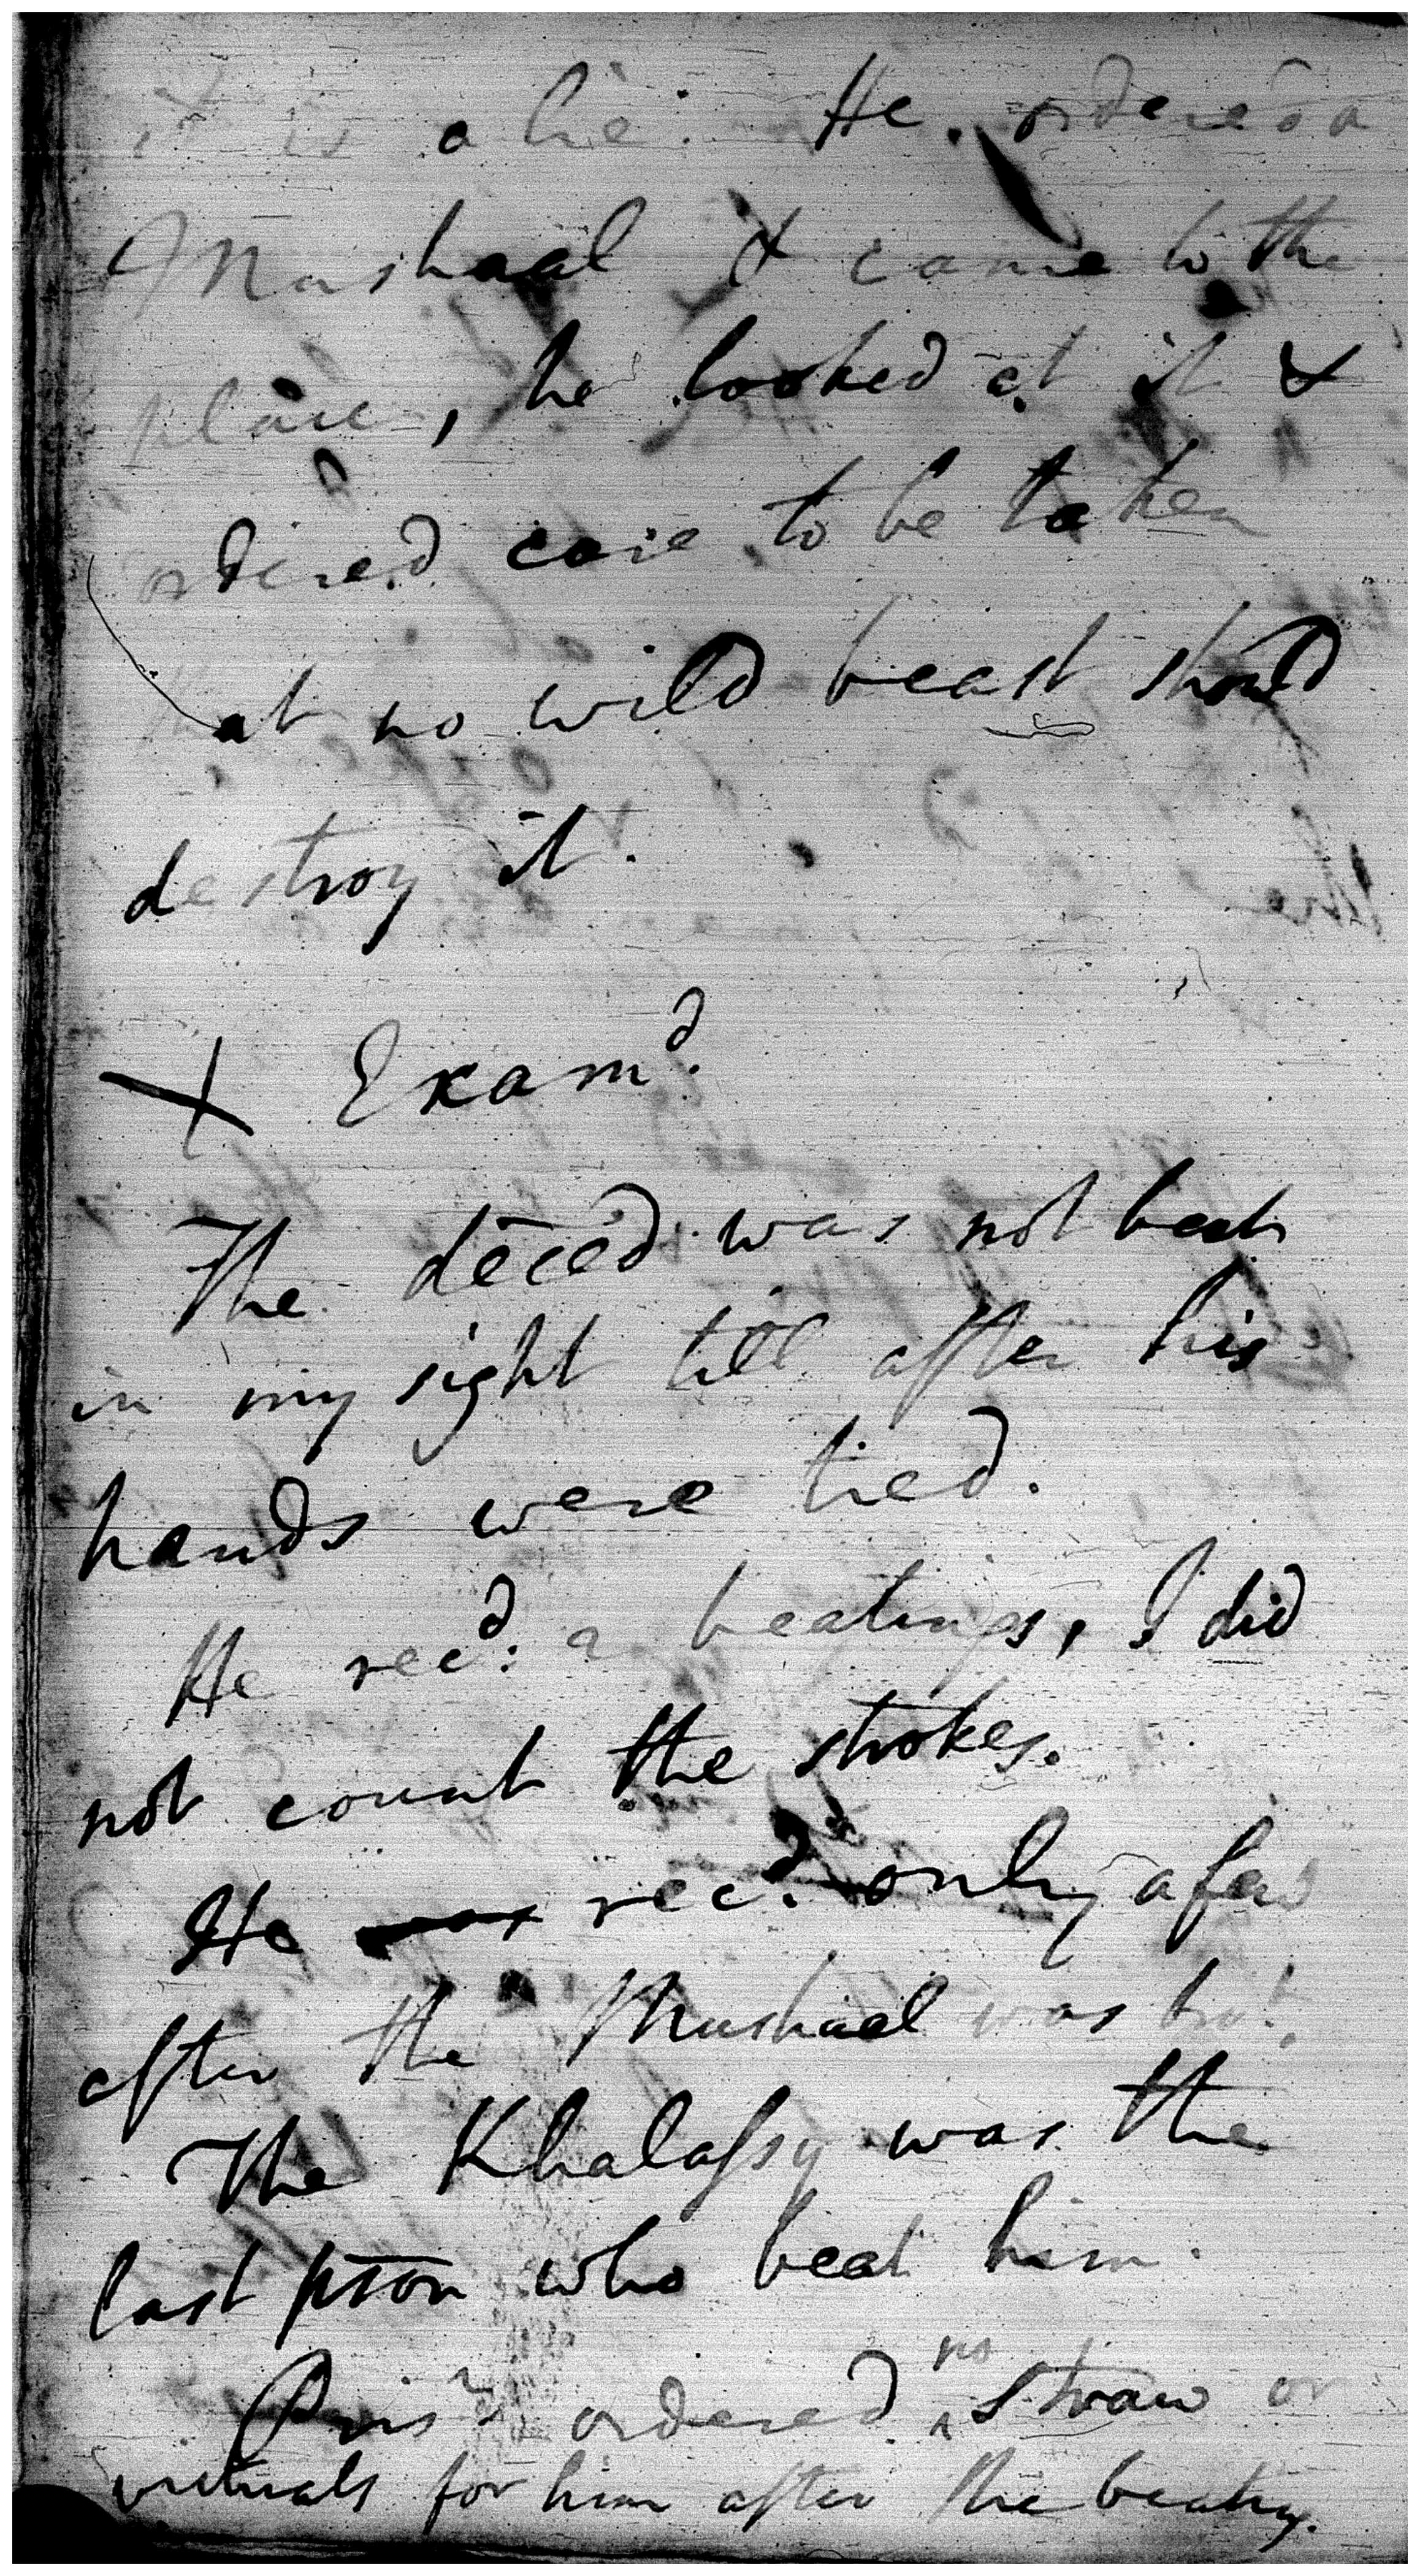 it is a lie. He ordered a
Mushaal & came to the
place, he looked at it &
ordered care to be taken
at no wild beast should
destroy it.
X Examd.
The deced was not beat
in my sight till after his
hands were tied.
He recd. a beatings, I did
not count the strokes.
He was recd. only a few
after the Mushaal was brot.
The Khalassy was the
last pson who beat him.
Prisr ordered no straw or
victuals for him after the beating.